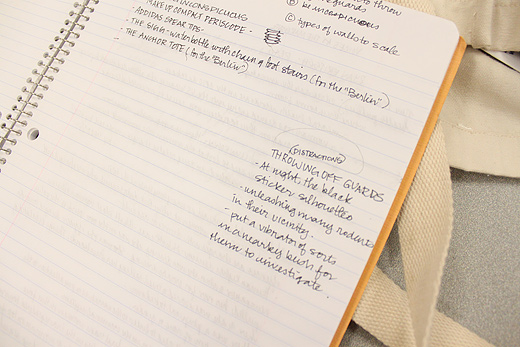 INCONSPICUOUS
MAKE UP COMPACT PERISCOPE -
ADIDAS SPEAR TIPS -
- THE SIGH - water bottle with chain & boot stairs (for the "Berlin")
- THE ANCHOR TOTE (for the "Berlin")
guards throw
(b) be inconspicuous
(c) types of walls to scale
(DISTRACTIONS)
THROWING OFF GUARDS
- At night, the black
sticker silhouette
- unleashing many rodents
in their vicinity -
- put a vibrator of sorts
in a nearby bush for
them to investigate.